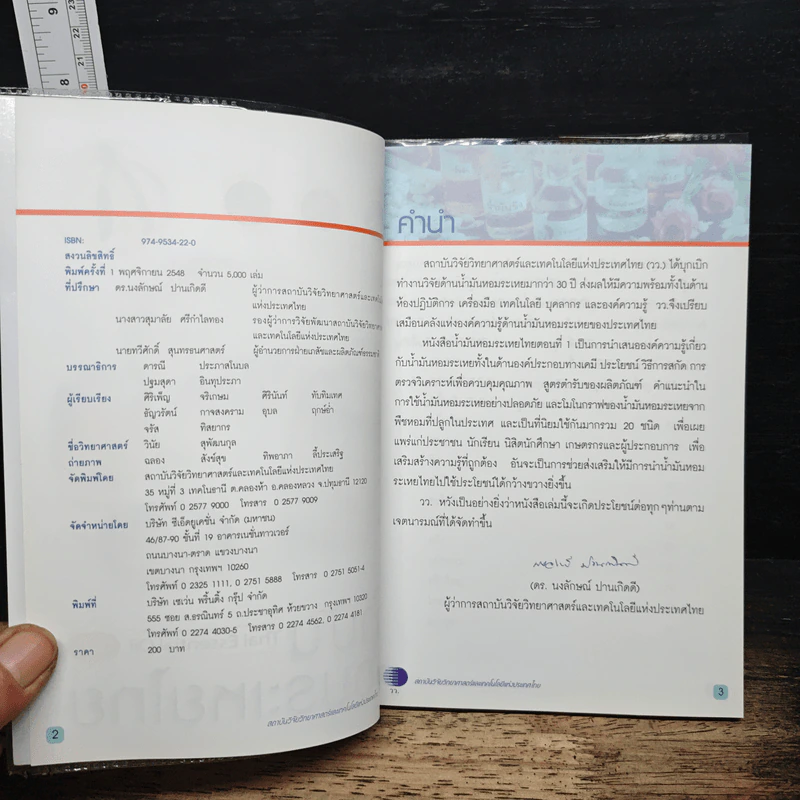 9
8
23
22
21
ISBN: 974-9534-22-0
สงวนลิขสิทธิ์
พิมพ์ครั้งที่ 1 พฤศจิกายน 2548 จำนวน 5,000 เล่ม
ที่ปรึกษา ดร.นงลักษณ์ ปานเกิดดี ผู้ว่าการสถาบันวิจัยวิทยาศาสตร์และเทคโนโลยี
แห่งประเทศไทย
นางสาวสุมาลัย ศรีกำไลทอง รองผู้ว่าการวิจัยพัฒนาสถาบันวิจัยวิทยาศาสตร์
และเทคโนโลยีแห่งประเทศไทย
นายทวีศักดิ์ สุนทรธนศาสตร์ ผู้อำนวยการฝ่ายเภสัชและผลิตภัณฑ์ธรรมชาติ
บรรณาธิการ ดารณี ประภาสโนบล
ปฐมสุดา อินทุประภา
ผู้เรียบเรียง ศิริเพ็ญ จริเกษม ศิรินันท์ ทับทิมเทศ
ธัญวรัตน์ กาจสงคราม อุบล ฤกษ์อ่ำ
จรัส ทิสยากร
ชื่อวิทยาศาสตร์ วินัย สุพัฒนกุล
ถ่ายภาพ ฉลอง สังข์สุข ทิพอาภา ลี้ประเสริฐ
จัดพิมพ์โดย สถาบันวิจัยวิทยาศาสตร์และเทคโนโลยีแห่งประเทศไทย
35 หมู่ที่ 3 เทคโนธานี ต.คลองห้า อ.คลองหลวง จ.ปทุมธานี 12120
โทรศัพท์ 0 2577 9000 โทรสาร 0 2577 9009
จัดจำหน่ายโดย บริษัท ซีเอ็ดยูเคชั่น จำกัด (มหาชน)
46/87-90 ชั้นที่ 19 อาคารเนชั่นทาวเวอร์
ถนนบางนา-ตราด แขวงบางนา
เขตบางนา กรุงเทพฯ 10260
โทรศัพท์ 0 2325 1111, 0 2751 5888 โทรสาร 0 2751 5051-4
พิมพ์ที่ บริษัท เซเว่น พริ้นติ้ง กรุ๊ป จำกัด
555 ซอย ส.ธรณินทร์ 5 ถ.ประชาอุทิศ ห้วยขวาง กรุงเทพฯ 10320
โทรศัพท์ 0 2274 4030-5 โทรสาร 0 2274 4562, 0 2274 4181
ราคา 200 บาท
สถาบันวิจัยวิทยาศาสตร์และเทคโนโลยีแห่งประเทศไทย
2
คำนำ
สถาบันวิจัยวิทยาศาสตร์และเทคโนโลยีแห่งประเทศไทย (วว.) ได้บุกเบิก
ทำงานวิจัยด้านน้ำมันหอมระเหยมากว่า 30 ปี ส่งผลให้มีความพร้อมทั้งในด้าน
ห้องปฏิบัติการ เครื่องมือ เทคโนโลยี บุคลากร และองค์ความรู้ วว.จึงเปรียบ
เสมือนคลังแห่งองค์ความรู้ด้านน้ำมันหอมระเหยของประเทศไทย
หนังสือน้ำมันหอมระเหยไทยตอนที่ 1 เป็นการนำเสนอองค์ความรู้เกี่ยว
กับน้ำมันหอมระเหยทั้งในด้านองค์ประกอบทางเคมี ประโยชน์ วิธีการสกัด การ
ตรวจวิเคราะห์เพื่อควบคุมคุณภาพ สูตรตำรับของผลิตภัณฑ์ คำแนะนำใน
การใช้น้ำมันหอมระเหยอย่างปลอดภัย และโมโนกราฟของน้ำมันหอมระเหยจาก
พืชหอมที่ปลูกในประเทศ และเป็นที่นิยมใช้กันมากรวม 20 ชนิด เพื่อเผย
แพร่แก่ประชาชน นักเรียน นิสิตนักศึกษา เกษตรกรและผู้ประกอบการ เพื่อ
เสริมสร้างความรู้ที่ถูกต้อง อันจะเป็นการช่วยส่งเสริมให้มีการนำน้ำมันหอม
ระเหยไทยไปใช้ประโยชน์ได้กว้างขวางยิ่งขึ้น
วว. หวังเป็นอย่างยิ่งว่าหนังสือเล่มนี้จะเกิดประโยชน์ต่อทุกๆท่านตาม
เจตนารมณ์ที่ได้จัดทำขึ้น
(ดร. นงลักษณ์ ปานเกิดดี)
ผู้ว่าการสถาบันวิจัยวิทยาศาสตร์และเทคโนโลยีแห่งประเทศไทย
วว.
สถาบันวิจัยวิทยาศาสตร์และเทคโนโลยีแห่งประเทศไทย
3